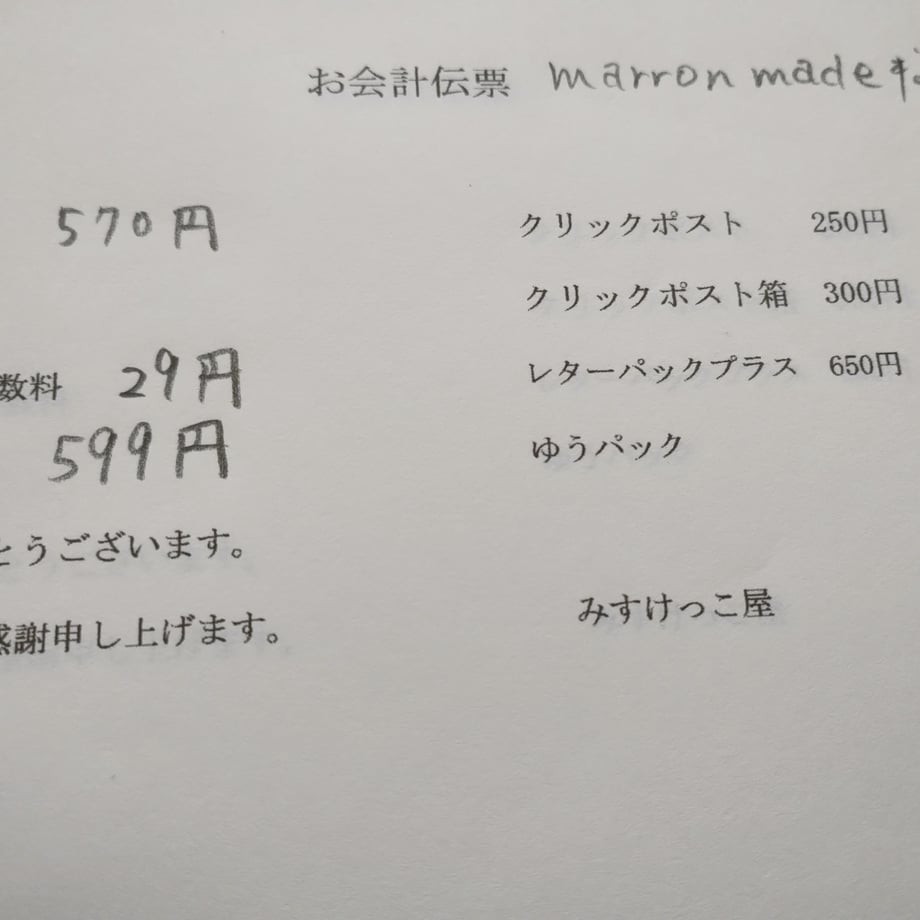 お会計伝票 marron made
570円 クリックポスト 250円
クリックポスト箱 300円
数料 29円 レターパックプラス 650円
599円 ゆうパック
とうございます。
みすけっこ屋
感謝申し上げます。